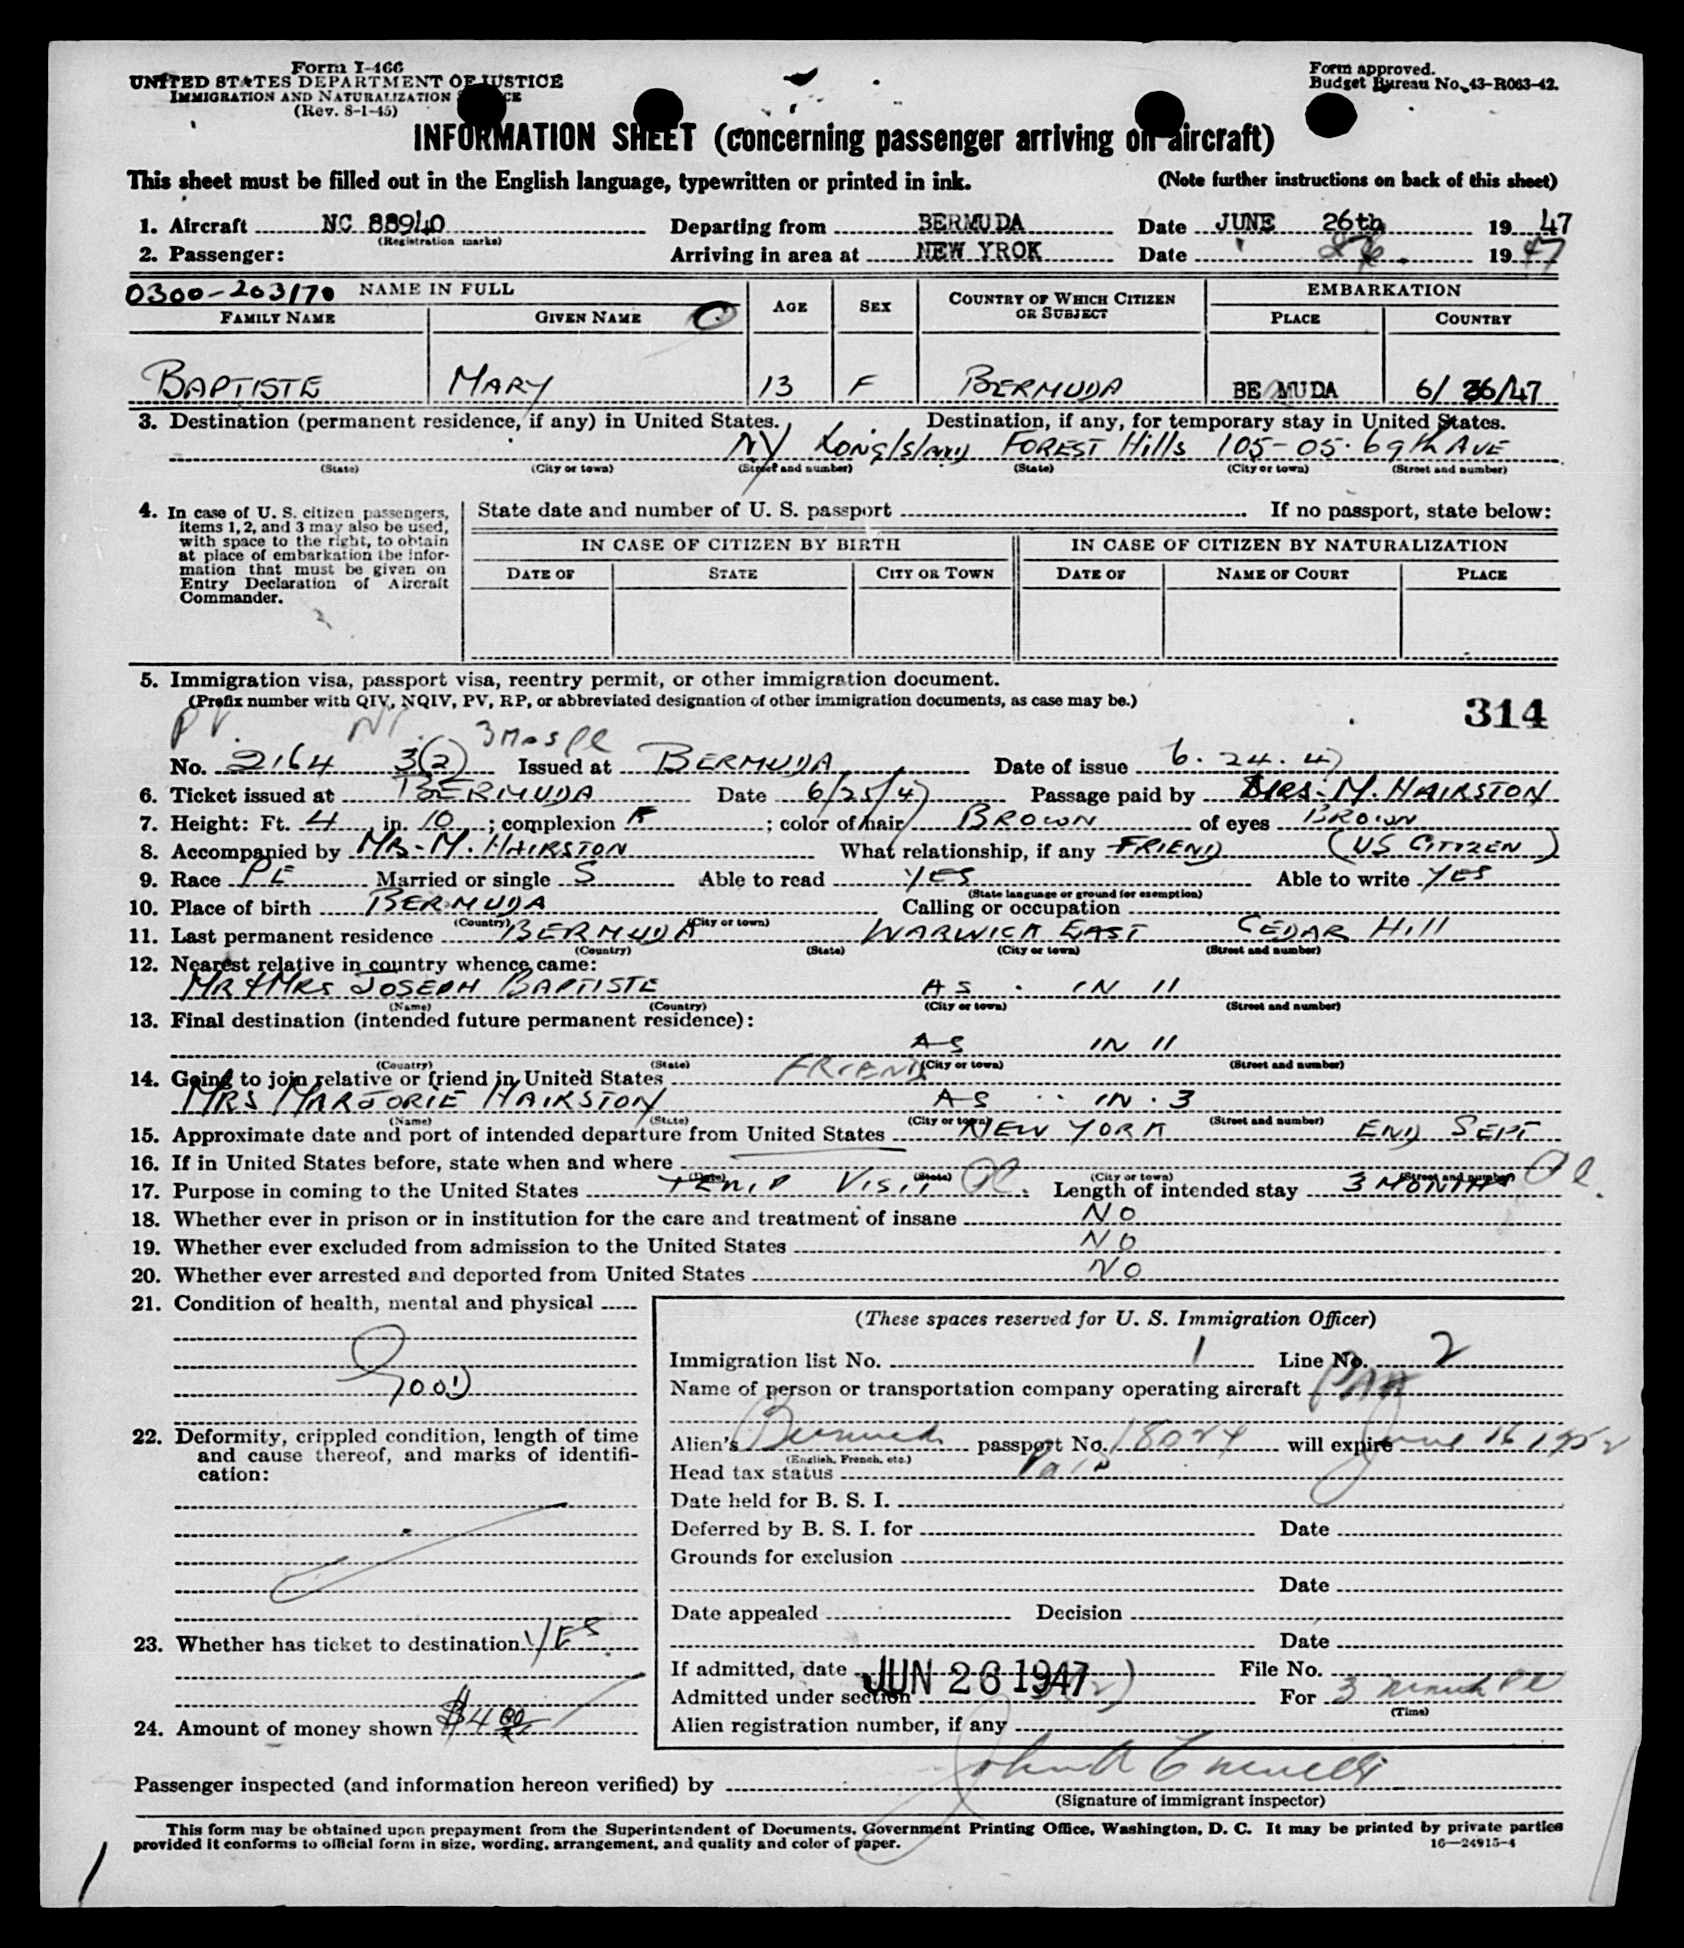 Form I-466
UNITED STATES DEPARTMENT OF JUSTICE
IMMIGRATION AND NATURALIZATION SERVICE
(Rev. 8-1-45)
Form approved.
Budget Bureau No. 43-R063-42.
INFORMATION SHEET (concerning passenger arriving on aircraft)
This sheet must be filled out in the English language, typewritten or printed in ink. (Note further instructions on back of this sheet)
1. Aircraft NC 88940 Departing from BERMUDA Date JUNE 26th 1947
(Registration marks)
2. Passenger: Arriving in area at NEW YROK Date 26 1947
0300-203170 NAME IN FULL AGE SEX COUNTRY OF WHICH CITIZEN OR SUBJECT EMBARKATION
FAMILY NAME GIVEN NAME PLACE COUNTRY
BAPTISTE MARY 13 F BERMUDA BE MUDA 6/26/47
3. Destination (permanent residence, if any) in United States. Destination, if any, for temporary stay in United States.
NY Long Island FOREST Hills 105-05.69th AVE
(State) (City or town) (Street and number) (State) (City or town) (Street and number)
4. In case of U. S. citizen passengers, items 1, 2, and 3 may also be used, with space to the right, to obtain at place of embarkation the information that must be given on Entry Declaration of Aircraft Commander.
State date and number of U. S. passport If no passport, state below:
IN CASE OF CITIZEN BY BIRTH IN CASE OF CITIZEN BY NATURALIZATION
DATE OF STATE CITY OR TOWN DATE OF NAME OF COURT PLACE
5. Immigration visa, passport visa, reentry permit, or other immigration document.
(Prefix number with QIV, NQIV, PV, RP, or abbreviated designation of other immigration documents, as case may be.)
314
PV. 3 mos
No. 2164 3(2) Issued at BERMUDA Date of issue 6.24.47
6. Ticket issued at BERMUDA Date 6/25/47 Passage paid by MRS. M. HAIRSTON
7. Height: Ft. 4 in. 10; complexion ; color of hair BROWN of eyes BROWN
8. Accompanied by MRS. M. HAIRSTON What relationship, if any FRIEND (US CITIZEN)
9. Race Married or single S Able to read YES Able to write YES
(State language or ground for exemption)
10. Place of birth BERMUDA Calling or occupation
(Country) (City or town)
11. Last permanent residence BERMUDA WARWICK EAST CEDAR Hill
(Country) (State) (City or town) (Street and number)
12. Nearest relative in country whence came:
MR & MRS JOSEPH BAPTISTE AS IN 11
(Name) (Country) (City or town) (Street and number)
13. Final destination (intended future permanent residence):
AS IN 11
(Country) (State) (City or town) (Street and number)
14. Going to join relative or friend in United States FRIEND
MRS MARJORIE HAIRSTON AS IN 3
(Name) (State) (City or town) (Street and number)
15. Approximate date and port of intended departure from United States NEW YORK END SEPT
16. If in United States before, state when and where
(Date) (State) (City or town) (Street and number)
17. Purpose in coming to the United States TEMP VISIT Length of intended stay 3 MONTHS
18. Whether ever in prison or in institution for the care and treatment of insane NO
19. Whether ever excluded from admission to the United States NO
20. Whether ever arrested and deported from United States NO
21. Condition of health, mental and physical
GOOD
22. Deformity, crippled condition, length of time and cause thereof, and marks of identification:
23. Whether has ticket to destination YES
24. Amount of money shown $400
(These spaces reserved for U. S. Immigration Officer)
Immigration list No. 1 Line No. 2
Name of person or transportation company operating aircraft PAA
Alien's Bermuda passport No. 18024 will expire June 16 1952
(English, French, etc.)
Head tax status Paid
Date held for B. S. I.
Deferred by B. S. I. for Date
Grounds for exclusion
Date
Date appealed Decision
Date
If admitted, date JUN 26 1947 File No.
Admitted under section 3(2) For 3 months
(Time)
Alien registration number, if any
Passenger inspected (and information hereon verified) by
(Signature of immigrant inspector)
This form may be obtained upon prepayment from the Superintendent of Documents, Government Printing Office, Washington, D. C. It may be printed by private parties
provided it conforms to official form in size, wording, arrangement, and quality and color of paper. 16—24915-4